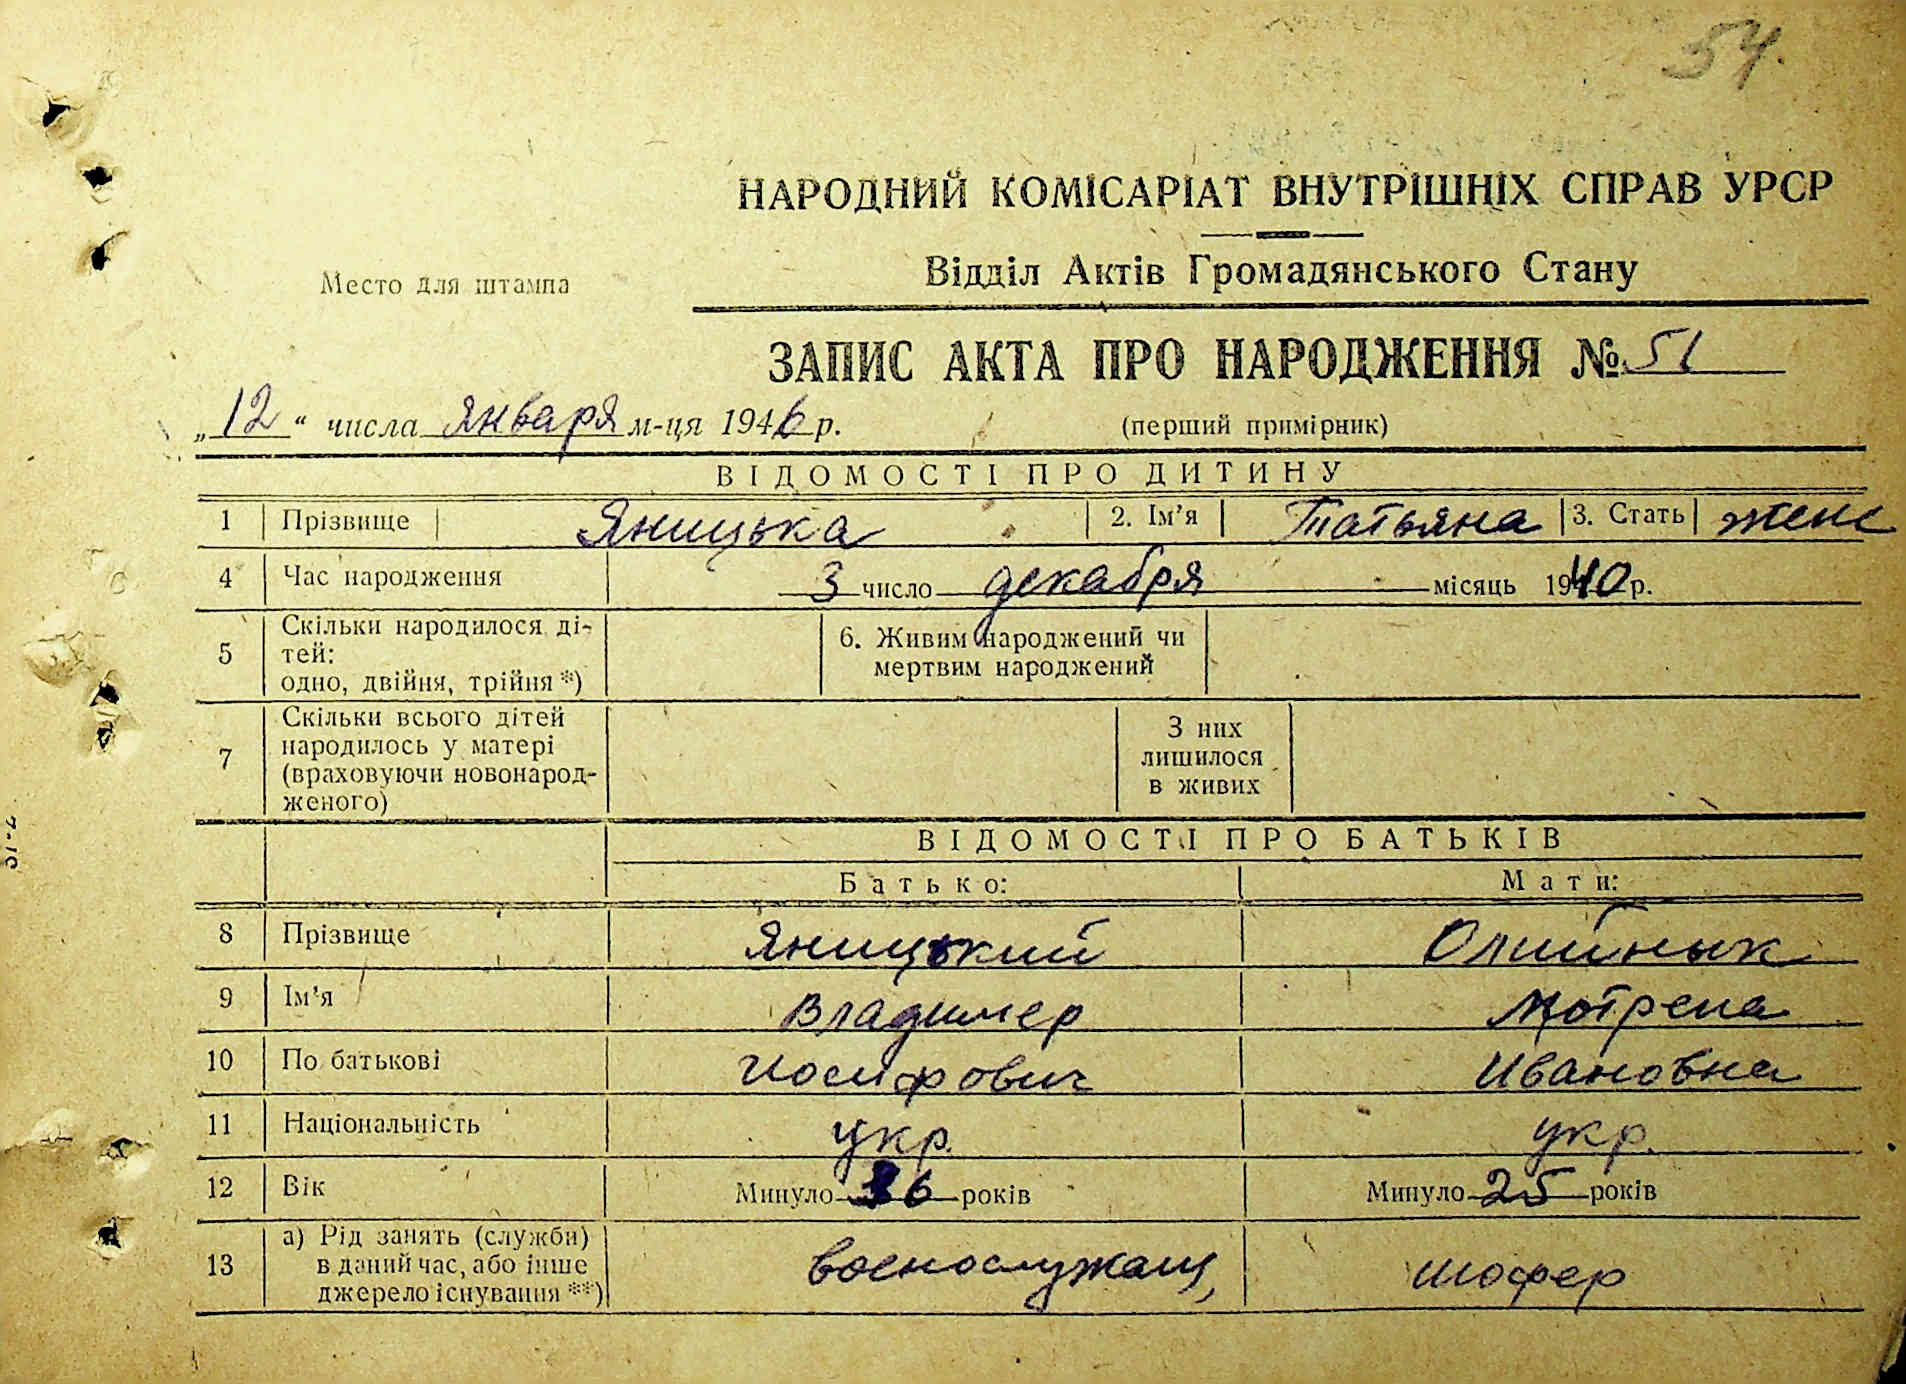 54.
НАРОДНИЙ КОМІСАРІАТ ВНУТРІШНІХ СПРАВ УРСР
Відділ Актів Громадянського Стану
Место для штампа
ЗАПИС АКТА ПРО НАРОДЖЕННЯ № 51
„12“ числа января м-ця 1946 р.
(перший примірник)
ВІДОМОСТІ ПРО ДИТИНУ
1 Прізвище Яницька 2. Ім'я Татьяна 3. Стать женс
4 Час народження 3 число декабря місяць 1940 р.
5 Скільки народилося ді-
тей:
одно, двійня, трійня *)
6. Живим народжений чи
мертвим народжений
7 Скільки всього дітей
народилось у матері
(враховуючи новонарод-
женого)
З них
лишилося
в живих
ВІДОМОСТІ ПРО БАТЬКІВ
Батько: Мати:
8 Прізвище Яницький Олийнык
9 Ім'я Владимер Мотрена
10 По батькові Иосифович Ивановна
11 Національність укр. укр.
12 Вік Минуло 36 років Минуло 25 років
13 а) Рід занять (служби)
в даний час, або інше
джерело існування **)
военослужащ, шофер